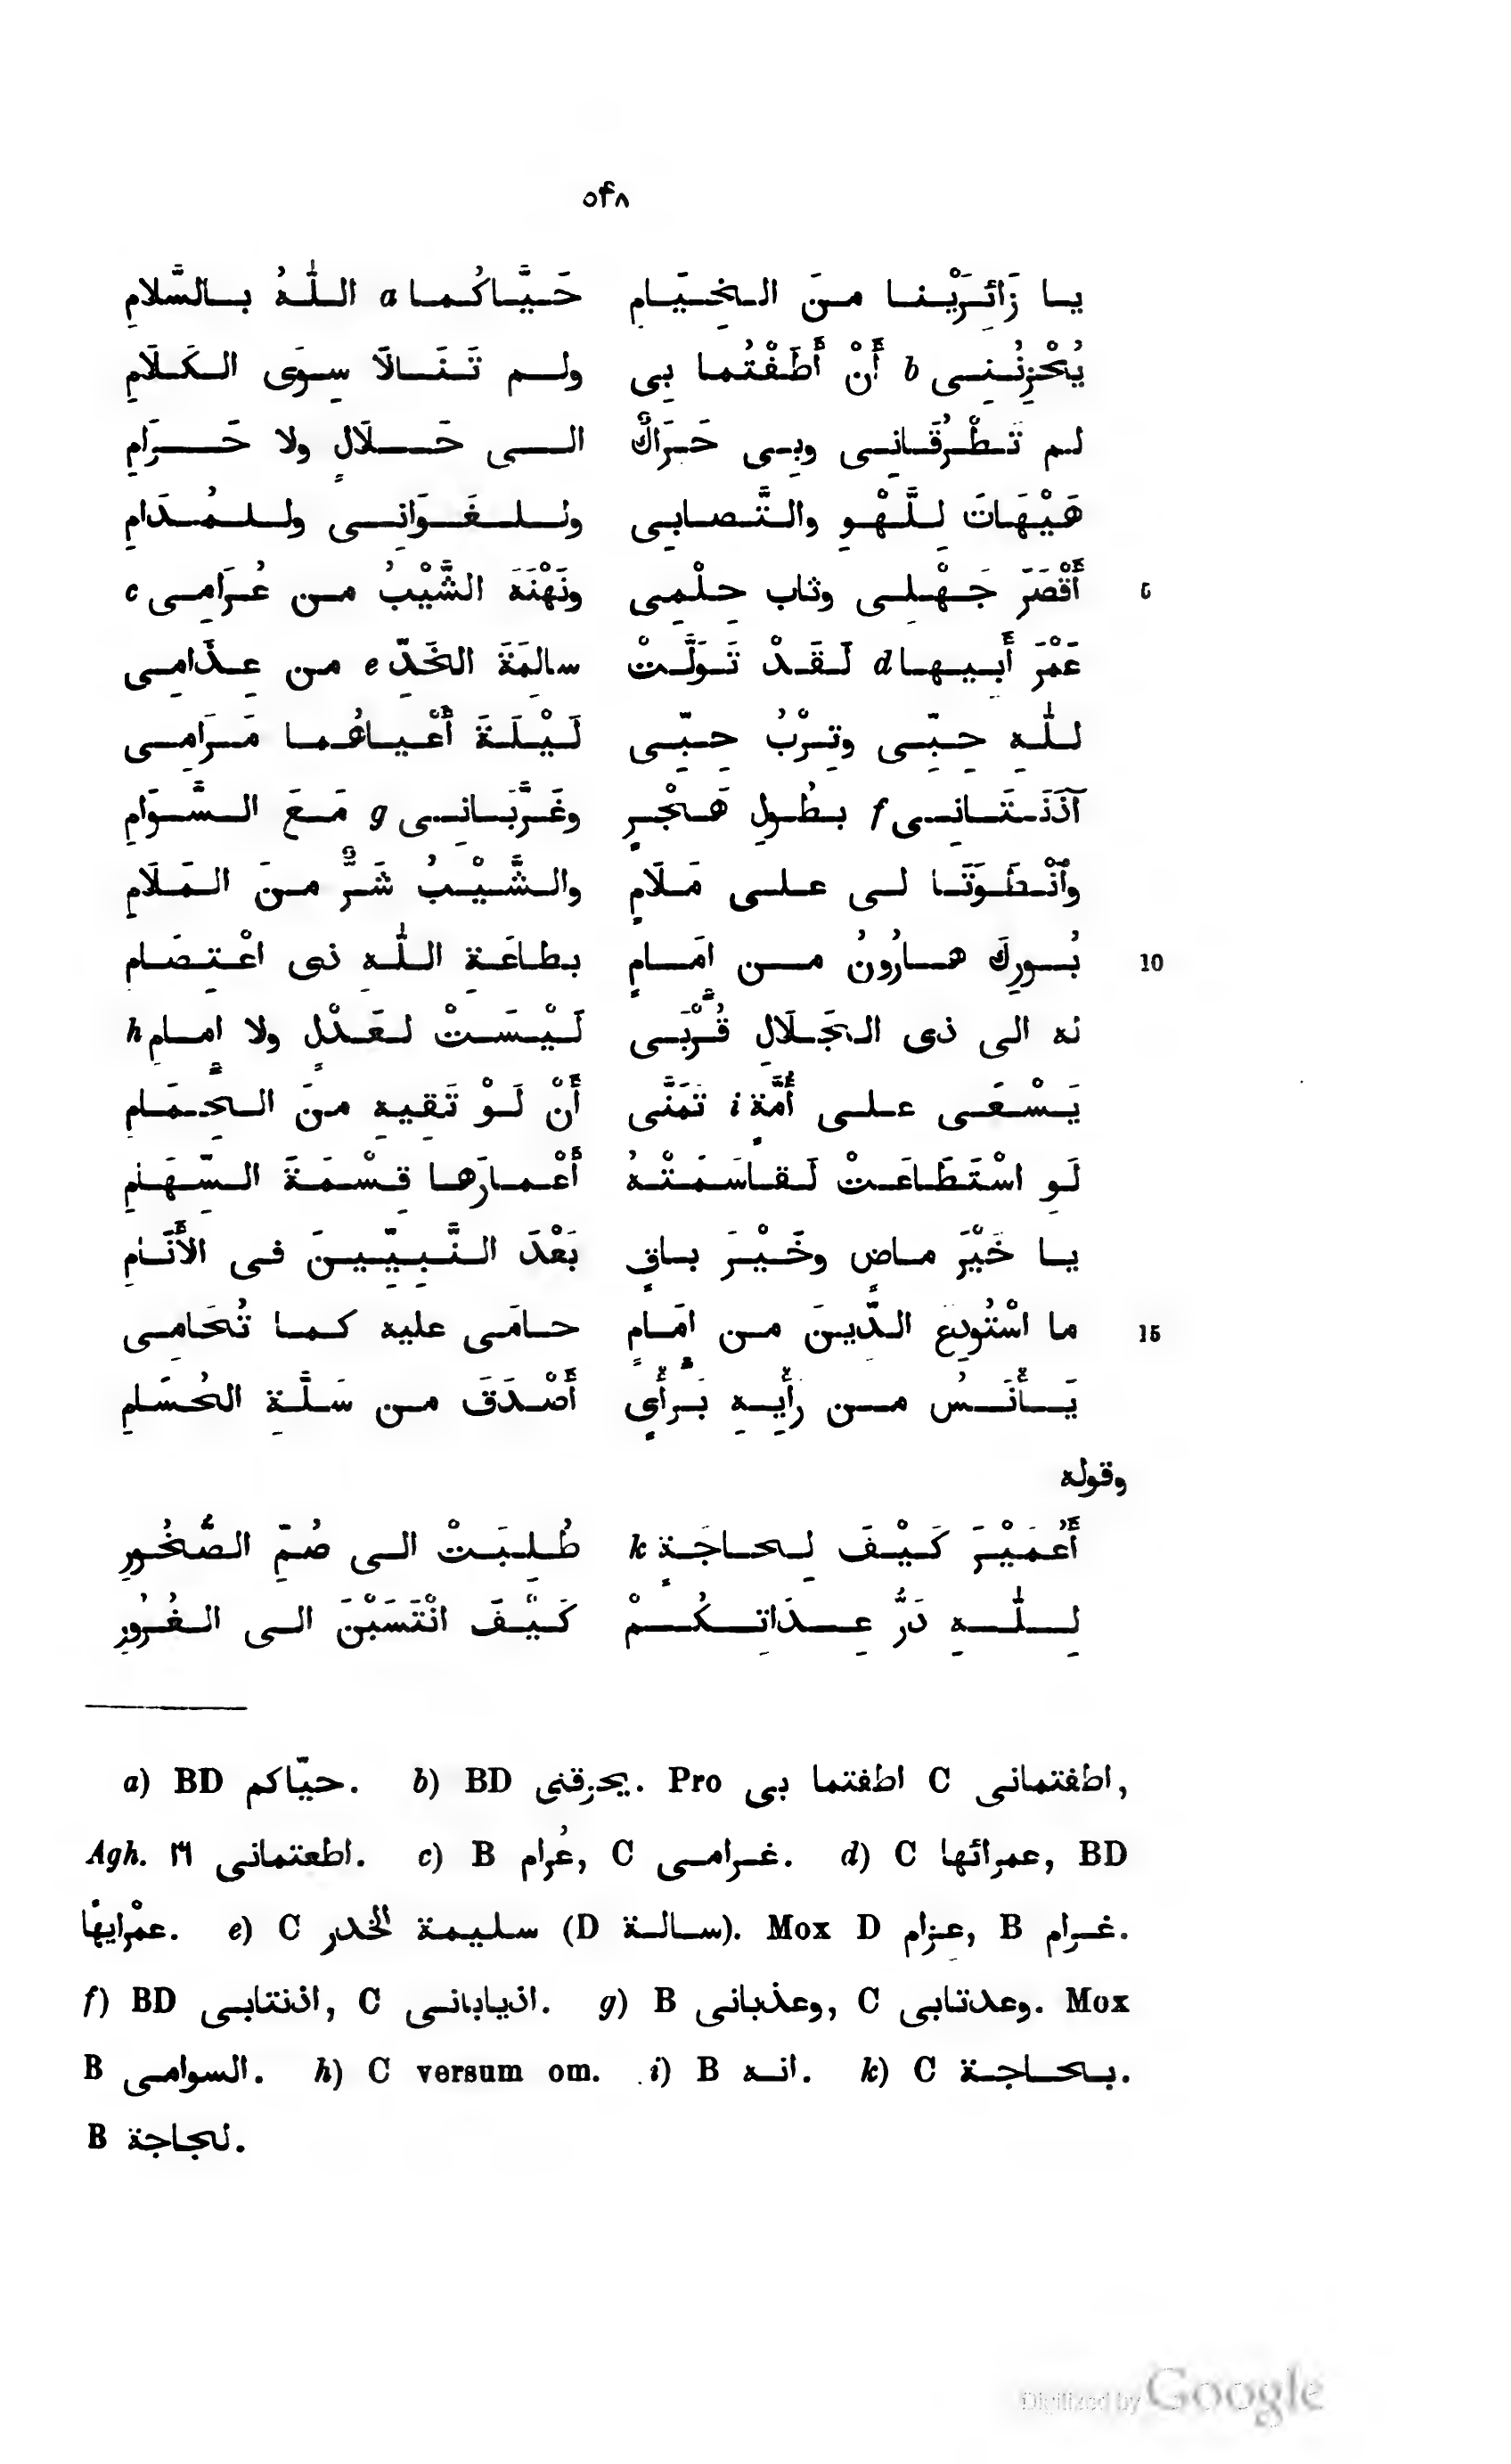 ٥۴٨
يا زَائِرَيْنا منَ الخِيَامِ حَيَّاكُما a اللّٰهُ بالسَّلامِ
يُحْزِنُنِي b أَنْ أَطَفْتُما بِي ولم تَنَالَا سِوَى الكَلَامِ
لم تَطْرُقَانِي وبِي حَرَاكٌ الى حَلَالٍ ولا حَرَامِ
هَيْهَاتَ لِلَّهْوِ والتَّصابِي ولِلغَوَانِي ولِلمُدَامِ
5 أَقْصَرَ جَهْلِي وثاب حِلْمِي ونَهْنَهَ الشَّيْبُ من عُرَامِي c
عَمْرَ أَبِيها d لَقَدْ تَوَلَّتْ سالِمَةَ الخَدِّ e من عِذَامِي
لِلّٰهِ حِبِّي وتِرْبُ حِبِّي لَيْلَةَ أَعْياهُما مَرَامِي
آذَنَتَانِي f بطُولِ هَجْرٍ وغَرَّبَانِي g مَعَ السَّوَامِ
وٱنْطَوَتَا لى على مَلَامٍ والشَّيْبُ شَرٌّ منَ المَلَامِ
10 بُورِكَ هارُونُ من امَامٍ بطاعَةِ اللّٰهِ ذى اعْتِصَامِ
له الى ذى الجَلَالِ قُرْبَى لَيْسَتْ لعَدْلٍ ولا امامِ h
يَسْعَى على أُمَّةٍ i تَمَنَّى أَنْ لَوْ تَقِيهِ منَ الحِمَامِ
لَوِ اسْتَطَاعَتْ لَقاسَمَتْهُ أَعْمارَها قِسْمَةَ السِّهَامِ
يا خَيْرَ ماضٍ وخَيْرَ باقٍ بَعْدَ النَّبِيِّينَ فى الأَنَامِ
15 ما اسْتُودِعَ الدِّينَ من امَامٍ حامَى عليه كما تُحَامِى
يَأْنَسُ من رَأْيِهِ بَرَأْيٍ أَصْدَقَ من سَلَّةِ الحُسَامِ
وقوله
أَعُمَيْرَ كَيْفَ لِحاجَةٍ k طُلِبَتْ الى صُمِّ الصُّخُورِ
لِلّٰهِ دَرُّ عِدَاتِكُمْ كَيْفَ انْتَسَبْنَ الى الغُرُورِ
a) BD حيّاكم. b) BD يحزقنى. Pro اطفتما بى C اطفتمانى,
Agh. ٣١ اطعتمانى. c) B عُرام, C غرامى. d) C عمرائها, BD
عمْرايهَا. e) C سليمة الخدر (D سالة). Mox D عزام, B غرام.
f) BD اذنتابى, C اذيابانى. g) B وعذبانى, C وعدتابى. Mox
B السوامى. h) C versum om. i) B انه. k) C بحاجة.
B لحجاجة.
Digitized by Google